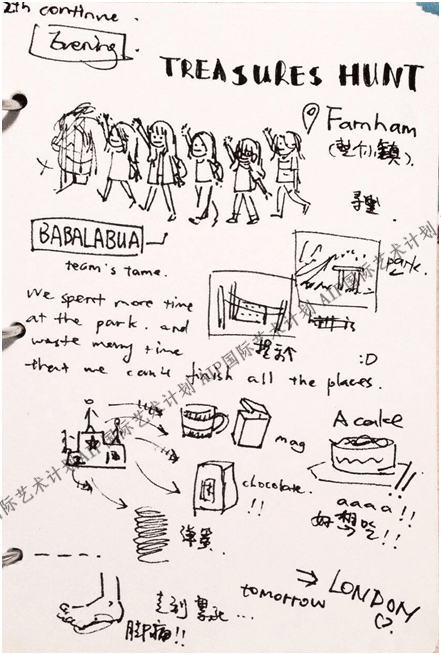 2th continue.
Evening
TREASURES HUNT
Farnham
(整个小镇).
BABALABUA
team's tame.
park
We spent more time
at the park. and
waste many time
that we can't finish all the places.
:D
mag
chocolate.
!!
A cake
aaaa!!
好想吃!!
弹簧
走到累死...
脚痛!!
tomorrow
⇒ LONDON
AIP国际艺术计划 AIP国际艺术计划 AIP国际艺术计划